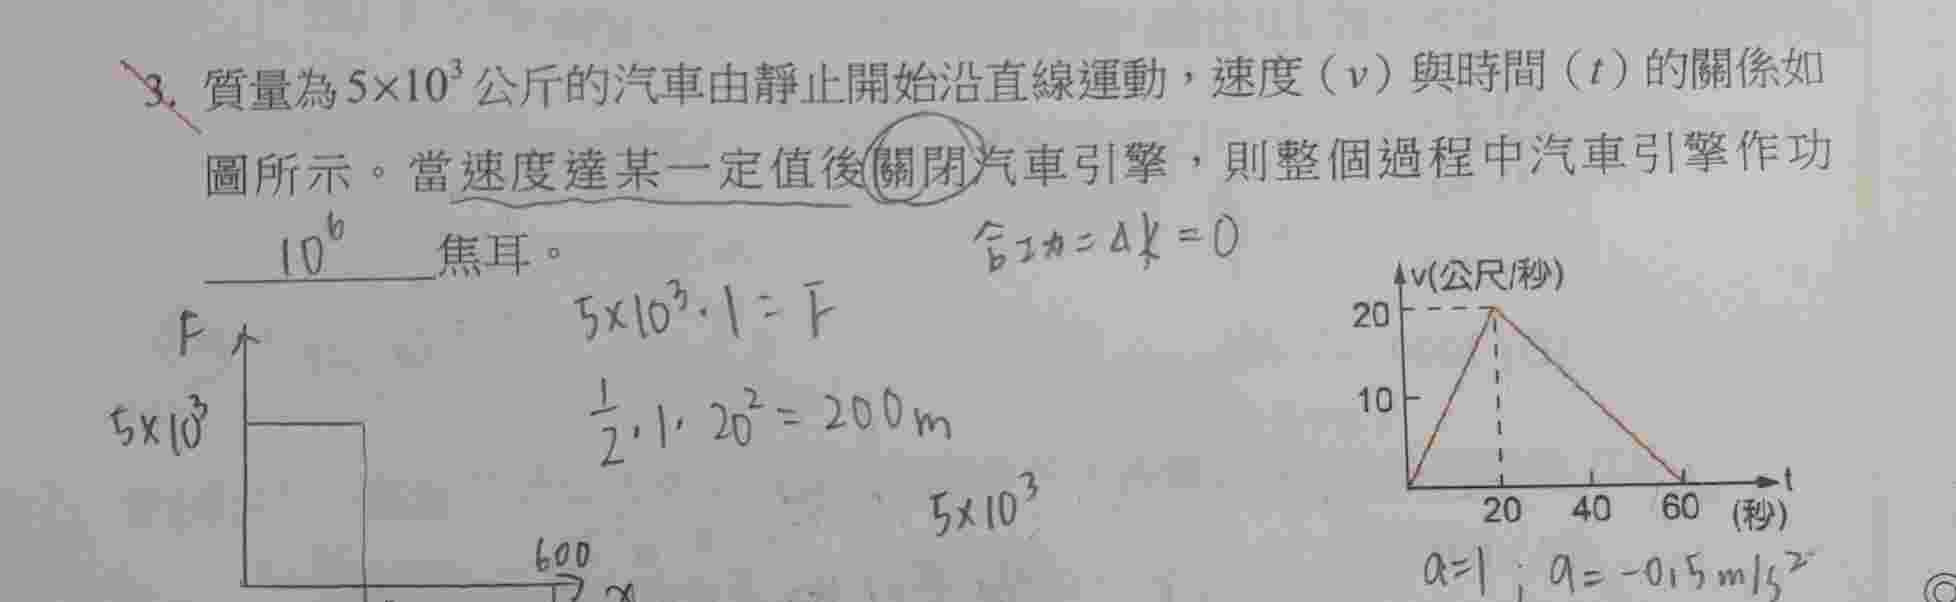 3. 質量為 5×10³ 公斤的汽車由靜止開始沿直線運動，速度（v）與時間（t）的關係如
圖所示。當速度達某一定值後關閉汽車引擎，則整個過程中汽車引擎作功
10⁶ 焦耳。
合功=Δk=0
5×10³·1=F
½·1·20²=200m
5×10³
F
5×10³
600
x
v(公尺/秒)
20
10
20 40 60 t
(秒)
a=1 ; a=-0.5m/s²